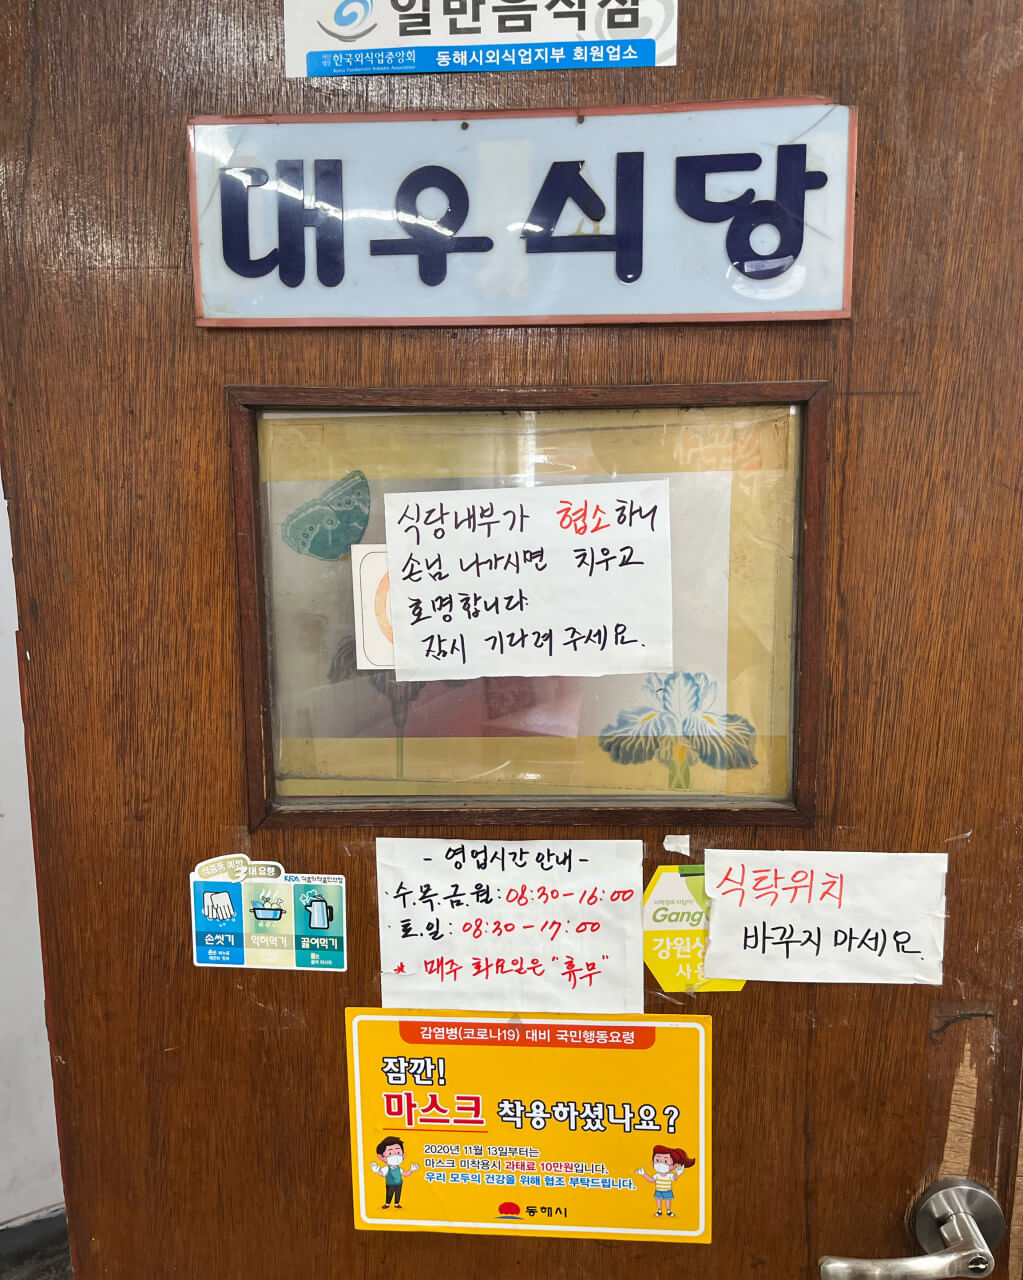 일반음식점
한국외식업중앙회 동해시외식업지부 회원업소
Korea Foodservice Industry Association
대우식당
식당내부가 협소하니
손님 나가시면 치우고
호명합니다.
잠시 기다려주세요.
- 영업시간 안내 -
· 수.목.금.월: 08:30-16:00
· 토.일: 08:30-17:00
* 매주 화요일은 "휴무"
식탁위치
바꾸지 마세요.
식중독 예방 3대 요령
손씻기
익혀먹기
끓여먹기
Gang
강원상
사용
감염병(코로나19) 대비 국민행동요령
잠깐!
마스크 착용하셨나요?
2020년 11월 13일부터는
마스크 미착용시 과태료 10만원입니다.
우리 모두의 건강을 위해 협조 부탁드립니다.
동해시